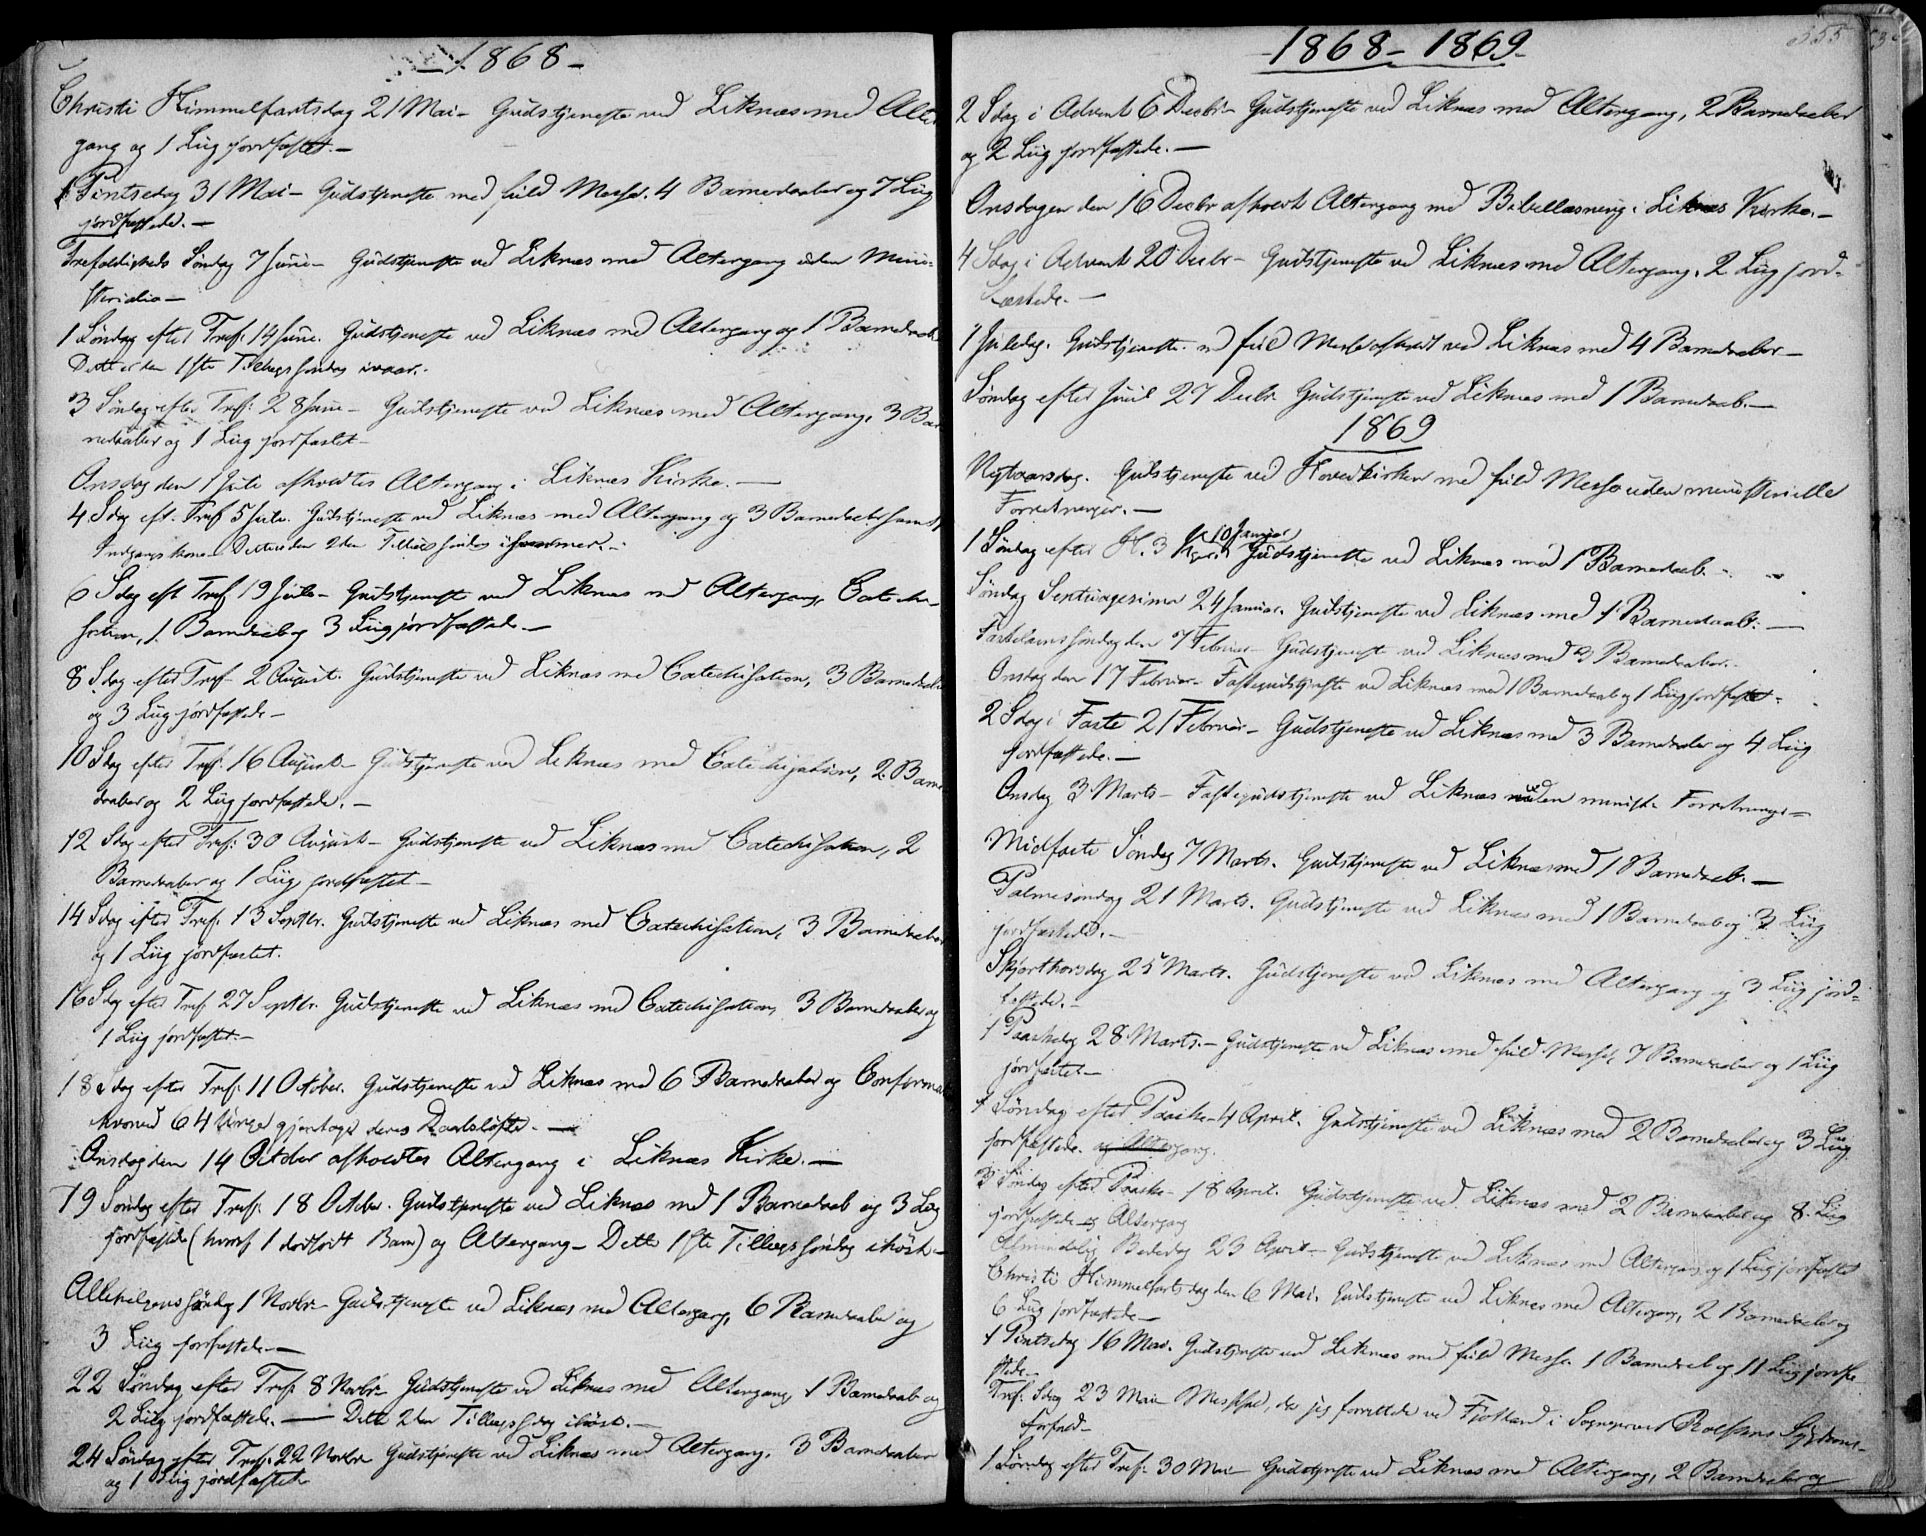 -1868-
Christi Himmelfartsdag 21 Mai- Gudstjeneste ved Liknæs med Alter
gang og 1 Liig jordfæstet.-
1 Pintsedag 31 Mai- Gudstjeneste med fuld Messe. 4 Barnedaaber og 7 Liig
jordfæstede.-
Trefoldigheds Søndag 7 Juni- Gudstjeneste ved Liknæs med Altergang uden Mini-
sterialia-
1 Søndag efter Tref. 14 Juni. Gudstjeneste ved Liknæs med Altergang og 1 Barnedaab
Dette er den 1ste Tillægssøndag ivaar.-
3 Søndag efter Tref: 28 Juni- Gudstjeneste ved Liknæs med Altergang, 3 Bar
nedaaber og 1 Liig jordfæstet-
Onsdag den 1 Juli afholdtes Altergang i Liknæs Kirke.-
4 Sdag eft. Tref 5 Juli. Gudstjeneste ved Liknæs med Altergang og 3 Barnedaaber samt
Indgangskone- Dette er den 2den Tillægssøndag i sommer.-
6 Sdag eft Tref 19 Juli- Gudstjeneste ved Liknæs med Altergang, Cateche-
sation, 1 Barnedaab og 3 Liig jordfæstede-
8 Sdag efter Tref- 2 August. Gudstjeneste ved Liknæs med Catechisation, 3 Barnedaaber
og 3 Liig jordfæstede-
10 Sdag efter Tref: 16 August- Gudstjeneste ved Liknæs med Catechisation, 2 Barne
daaber og 2 Liig jordfæstede.-
12 Sdag efter Tref: 30 August- Gudstjeneste ved Liknæs med Catechisation, 2
Barnedaaber og 1 Liig jordfæstet-
14 Sdag efter Tref: 13 Septbr. Gudstjeneste ved Liknæs med Catechisation, 3 Barnedaaber
og 1 Liig jordfæstet.
16 Sdag efter Tref 27 Septbr. Gudstjeneste ved Liknæs med Catechisation, 3 Barnedaaber og
1 Liig jordfæstet.-
18 Sdag efter Tref: 11 October. Gudstjeneste ved Liknæs med 6 Barnedaaber og Confirmat
hvorved 64 Unge gjentoge deres Daabsløfte.-
Onsdag den 14 October afholdtes Altergang i Liknæs Kirke.-
19 Søndag efter Tref: 18 October. Gudstjeneste ved Liknæs med 1 Barnedaab og 3 Liig
jordfæstede (hvoraf 1 dødfødt Barn) og Altergang- Dette 1ste Tillægssøndag ihøst-
Allehelgenssøndag 1 Novbr- Gudstjeneste ved Liknæs med Altergang, 6 Barnedaaber og
3 Liig jordfæstede.-
22 Søndag efter Tref: 8 Novbr- Gudstjeneste ved Liknæs med Altergang, 1 Barnedaab og
2 Liig jordfæstede.- Dette 2den Tillægssdag ihøst.-
24 Søndag efter Tref: 22 Novbr Gudstjeneste ved Liknæs med Altergang, 3 Barnedaaber
og 1 Liig jordfæstet-
-1868-1869-
355
2 Sdag i Advent 6 Decbr- Gudstjeneste ved Liknæs med Altergang, 2 Barnedaaber
og 2 Liig jordfæstede.-
Onsdagen den 16 Decbr afholdt Altergang med Bibellæsning i Liknæs Kirke.-
4 Sdag i Advent 20 Decbr- Gudstjeneste ved Liknæs med Altergang, 2 Liig jord-
fæstede.-
1 Juledag. Gudstjeneste med fuld Messe afholdt ved Liknæs med 4 Barnedaaber-
Søndag efter Juul 27 Decbr Gudstjeneste ved Liknæs med 1 Barnedaab.-
1869
Nytaarsdag. Gudstjeneste ved Hovedkirken med fuld Messe uden ministerielle
Forretninger.-
1 Søndag efter H. 3 Kger 10 Januar Gudstjeneste ved Liknæs med 1 Barnedaab.-
Søndag Septuagesima 24 Januar. Gudstjeneste ved Liknæs med 1 Barnedaab.-
Fastelavnssøndag den 7 Februar- Gudstjeneste ved Liknæs med 3 Barnedaaber.-
Onsdag den 17 Februar- Fastegudstjeneste ved Liknæs med 1 Barnedaab og 1 Liig jordfæstet-
2 Sdag i Faste 21 Februar- Gudstjeneste ved Liknæs med 3 Barnedaaber og 4 Liig
jordfæstede.-
Onsdag 3 Marts- Fastegudstjeneste ved Liknæs uden minist. Forretninger-
Midfaste Søndag 7 Marts. Gudstjeneste ved Liknæs med 1 Barnedaab.-
Palmesøndag 21 Marts. Gudstjeneste ved Liknæs med 1 Barnedaab og 3 Liig
jordfæstede.-
Skjærthorsdag 25 Marts. Gudstjeneste ved Liknæs med Altergang og 3 Liig jord-
fæstede.-
1 Paaskedag 28 Marts.- Gudstjeneste ved Liknæs med fuld Messe, 7 Barnedaaber og 1 Liig
jordfæstet-
1 Søndag efter Paaske- 4 April. Gudstjeneste ved Liknæs med 2 Barnedaaber og 3 Liig
jordfæstede. og Altergang.
3 Søndag efter Paaske- 18 April. Gudstjeneste ved Liknæs med 2 Barnedaaber og 8 Liig
jordfæstede og Altergang
Almindelig Bededag 23 April- Gudstjeneste ved Liknæs med Altergang og 1 Liig jordfæstet
Christi Himmelfartsdag den 6 Mai. Gudstjeneste ved Liknæs med Altergang, 2 Barnedaaber og
6 Liig jordfæstede-
1 Pintsedag 16 Mai. Gudstjeneste ved Liknæs med fuld Messe 1 Barnedaab og 11 Liig jordfæ
stede-
Tref. Sdag 23 Mai- Messefald, da jeg forrettede ved Fjotland i Sognepræst Sygdoms-
Forfald-
1 Søndag efter Tref: 30 Mai- Gudstjeneste ved Liknæs med Altergang, 2 Barnedaaber og